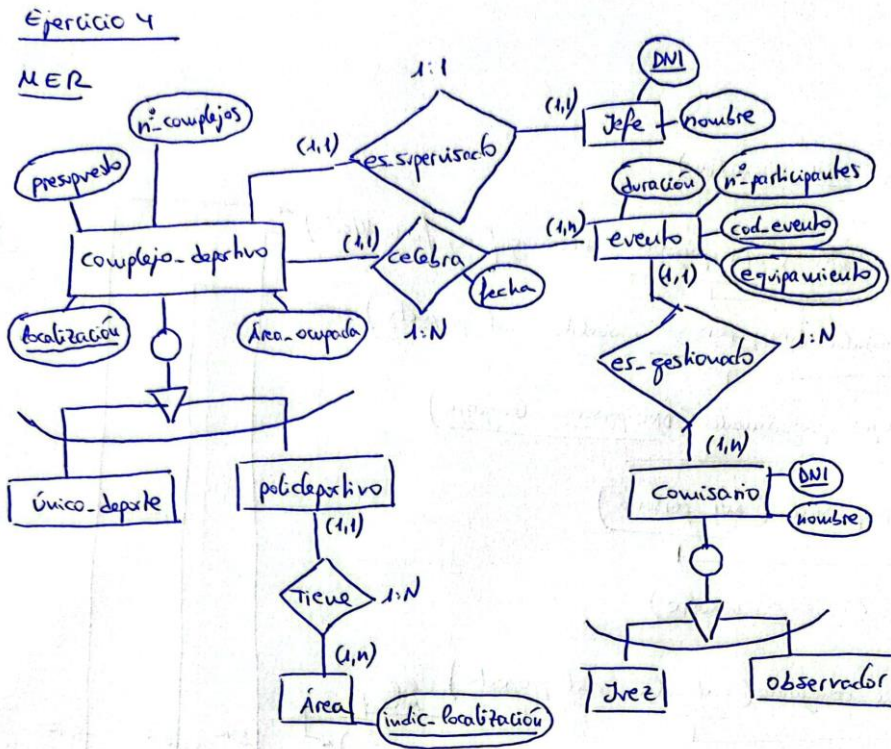 Ejercicio 4
MER
nº_complejos
presupuesto
complejo_deportivo
localización
Área_ocupada
1:1
(1,1)
es_supervisado
(1,1)
Jefe
DNI
nombre
(1,1)
celebra
fecha
1:N
(1,n)
evento
duración
nº_participantes
cod_evento
equipamiento
(1,1)
es_gestionado
1:N
(1,n)
Comisario
DNI
nombre
único_deporte
polideportivo
(1,1)
Tiene
1:N
(1,n)
Área
indic_localización
Juez
observador